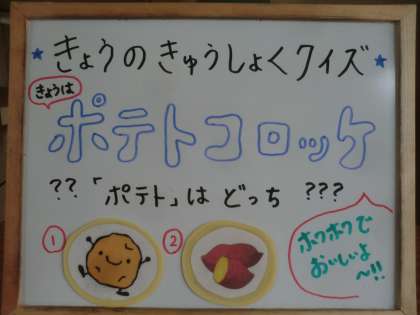 ★きょうの きゅうしょくクイズ★
きょうは
ポテトコロッケ
?? 「ポテト」は どっち ???
① ②
ホクホクで
おいしいよ
~!!